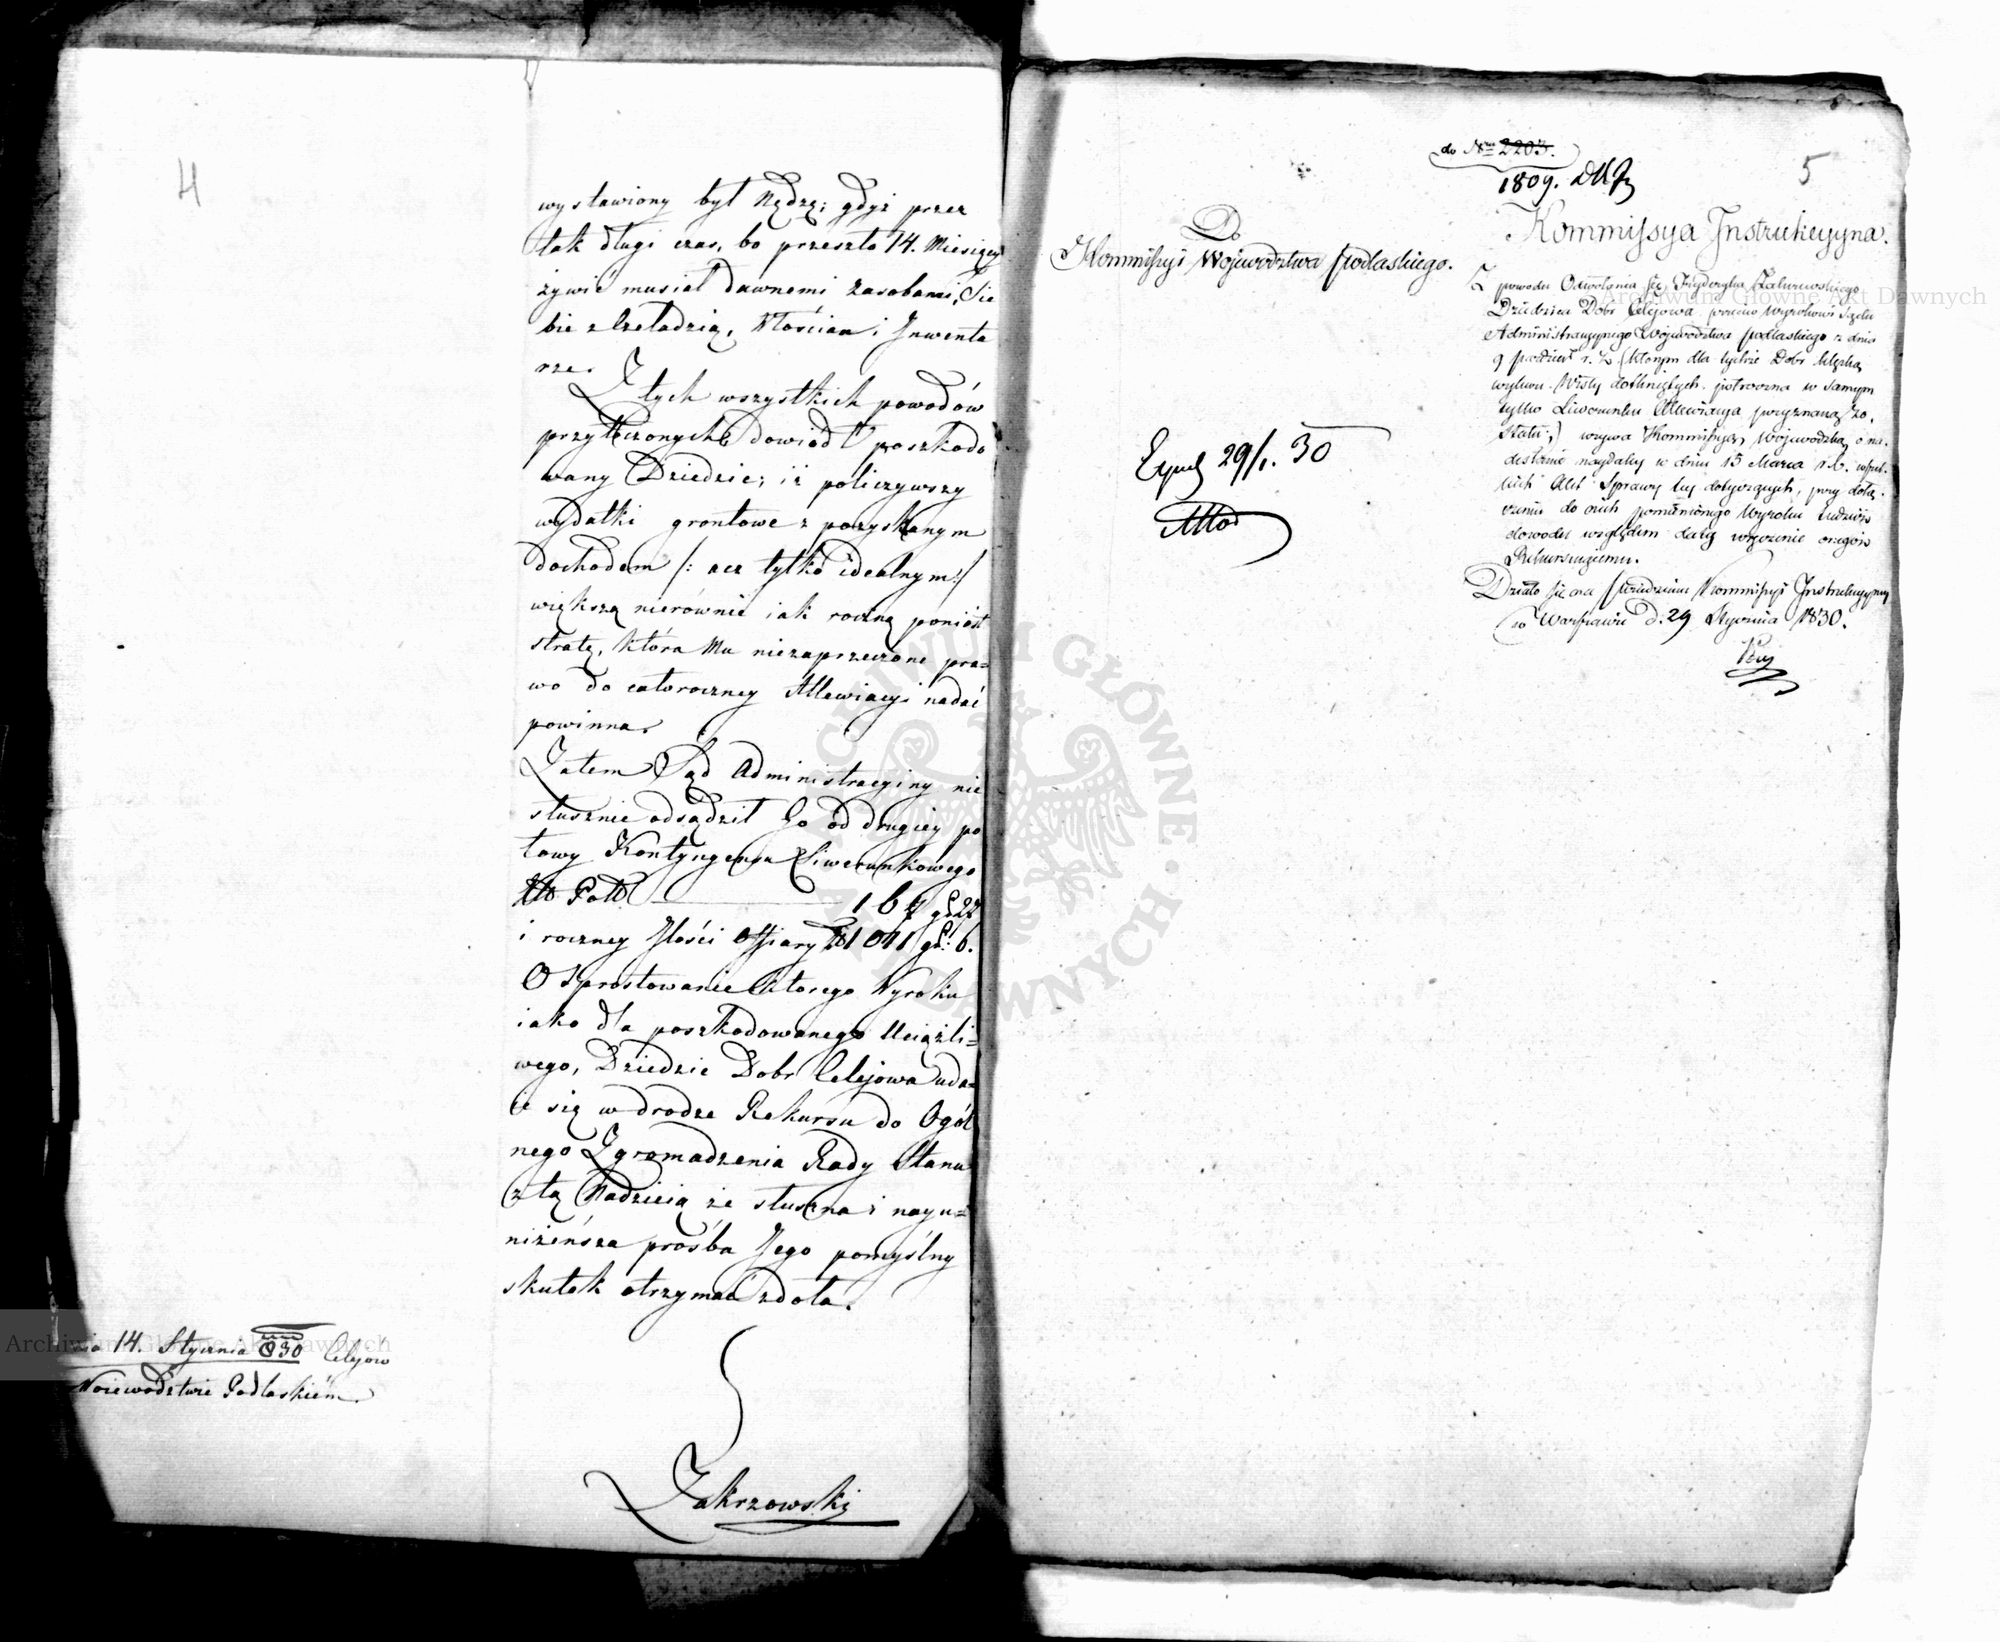 4
wystawiony był Nędzę; gdyż przez
tak długi czas, bo przeszło 14. Miesięcy
żywić musiał dawnemi zasobami, Sie
bie z Czeladzią, Włościan i Inwenta
rze.
Z tych wszystkich powodów
przytoczonych dowiódł poszkodo
wany Dziedzic; iż policzywszy
wydatki grontowe z pozyskanym
dochodem /: acz tylko idealnym :/
większą nierównie iak roczną poniósł
stratę, która Mu niezaprzeczone pra=
wo do całoroczney Allewiacyi nadać
powinna.
Zatem Sąd Administracyiny nie
słusznie odsądził Go od drugiey po
łowy Kontyngensu Liwerunkowego
w
i roczney Ilości Offiary Zł 1041 gr: 6.
O Sprostowanie którego Wyroku
iako dla poszkodowanego Uciążli=
wego, Dziedzic Dobr Celejowa uda=
ie się w drodze Rekursu do Ogól
nego Zgromadzenia Rady Stanu
z tą Nadzieią że słuszna i nayu=
niżeńsza prośba Jego pomyślny
skutek otrzymać zdoła.
14. Stycznia 830 Celejow
Woiewodztwie Podlaskiém
Zakrzewski
5
do Nru 2203.
1809.
Do
Kommissyi Województwa Podlaskiego.
Kommissya Instrukcyyna.
Z powodu Odwołania się Fryderyka Zakrzewskiego
Dziedzica Dobr Celejowa przeciw Wyrokowi Sądu
Administracyynego Województwa Podlaskiego z dnia
9 Paździer r. z. (którym dla tychże Dobr klęską
wylewu Wisły dotkniętych półroczna w samym
tylko Liwerunku Allewiacya przyznaną zo-
stała,) wzywa Kommissyą Wojewódzką o na-
desłanie naydaley w dniu 15 Marca r. b. wszel-
kich Akt Sprawy tey dotyczących, przy dołą-
czeniu do nich pomienionego Wyroku tudzież
dowodu względem daty wręczenia onegoż
Rekursującemu.
Działo się na Posiedzeniu Kommissyi Instrukcyyney
w Warszawie d. 29 Stycznia 1830.
29/1. 30
Archiwum Główne Akt Dawnych
Archiwum Główne Akt Dawnych
ARCHIWUM GŁÓWNE AKT DAWNYCH